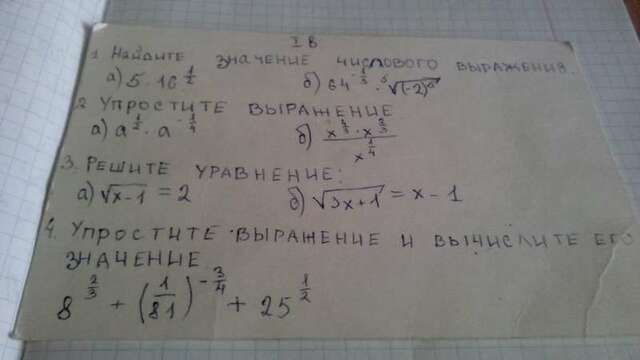 I В
1. Найдите значение числового выражения.
а) 5·16^{1/2} б) 64^{-1/3}·
2. Упростите выражение
а) a^{1/2}·a^{-1/4} б)
3. Решите уравнение:
а) √(x-1) = 2 б) √(3x+1) = x-1
4. Упростите выражение и вычислите его
значение
8^{2/3} + (1/81)^{-3/4} + 25^{1/2}